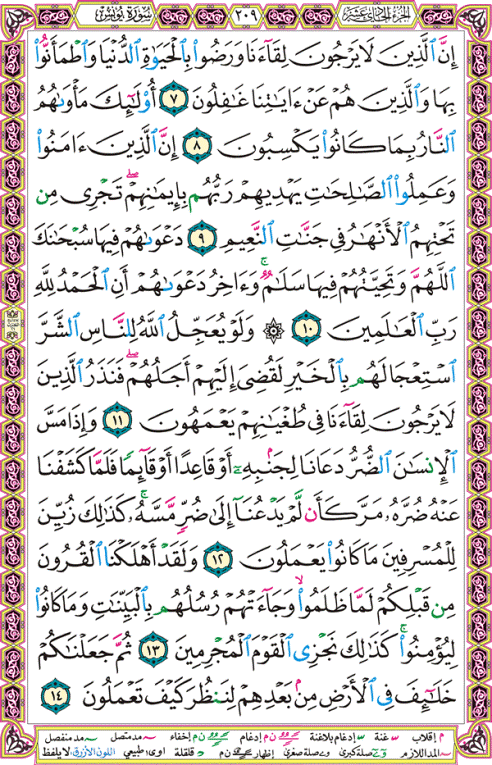 الجزء الحادي عشر ٢٠٩ سورة يونس
إِنَّ ٱلَّذِينَ لَا يَرْجُونَ لِقَآءَنَا وَرَضُوا۟ بِٱلْحَيَوٰةِ ٱلدُّنْيَا وَٱطْمَأَنُّوا۟
بِهَا وَٱلَّذِينَ هُمْ عَنْ ءَايَـٰتِنَا غَـٰفِلُونَ ٧ أُو۟لَـٰٓئِكَ مَأْوَىٰهُمُ
ٱلنَّارُ بِمَا كَانُوا۟ يَكْسِبُونَ ٨ إِنَّ ٱلَّذِينَ ءَامَنُوا۟
وَعَمِلُوا۟ ٱلصَّـٰلِحَـٰتِ يَهْدِيهِمْ رَبُّهُم بِإِيمَـٰنِهِمْ ۖ تَجْرِى مِن
تَحْتِهِمُ ٱلْأَنْهَـٰرُ فِى جَنَّـٰتِ ٱلنَّعِيمِ ٩ دَعْوَىٰهُمْ فِيهَا سُبْحَـٰنَكَ
ٱللَّهُمَّ وَتَحِيَّتُهُمْ فِيهَا سَلَـٰمٌ ۚ وَءَاخِرُ دَعْوَىٰهُمْ أَنِ ٱلْحَمْدُ لِلَّهِ
رَبِّ ٱلْعَـٰلَمِينَ ١٠ ۞ وَلَوْ يُعَجِّلُ ٱللَّهُ لِلنَّاسِ ٱلشَّرَّ
ٱسْتِعْجَالَهُم بِٱلْخَيْرِ لَقُضِىَ إِلَيْهِمْ أَجَلُهُمْ ۖ فَنَذَرُ ٱلَّذِينَ
لَا يَرْجُونَ لِقَآءَنَا فِى طُغْيَـٰنِهِمْ يَعْمَهُونَ ١١ وَإِذَا مَسَّ
ٱلْإِنسَـٰنَ ٱلضُّرُّ دَعَانَا لِجَنۢبِهِۦٓ أَوْ قَاعِدًا أَوْ قَآئِمًا فَلَمَّا كَشَفْنَا
عَنْهُ ضُرَّهُۥ مَرَّ كَأَن لَّمْ يَدْعُنَآ إِلَىٰ ضُرٍّ مَّسَّهُۥ ۚ كَذَٰلِكَ زُيِّنَ
لِلْمُسْرِفِينَ مَا كَانُوا۟ يَعْمَلُونَ ١٢ وَلَقَدْ أَهْلَكْنَا ٱلْقُرُونَ
مِن قَبْلِكُمْ لَمَّا ظَلَمُوا۟ ۙ وَجَآءَتْهُمْ رُسُلُهُم بِٱلْبَيِّنَـٰتِ وَمَا كَانُوا۟
لِيُؤْمِنُوا۟ ۚ كَذَٰلِكَ نَجْزِى ٱلْقَوْمَ ٱلْمُجْرِمِينَ ١٣ ثُمَّ جَعَلْنَـٰكُمْ
خَلَـٰٓئِفَ فِى ٱلْأَرْضِ مِنۢ بَعْدِهِمْ لِنَنظُرَ كَيْفَ تَعْمَلُونَ ١٤
م إقلاب غنة إدغام بلاغنة ن م إدغام ن م إخفاء مد متصل مد منفصل
المد اللازم صلة كبرى وصلة صغرى إظهار ن م قلقلة اوى: طبيعي اللون الأزرق: لا يلفظ